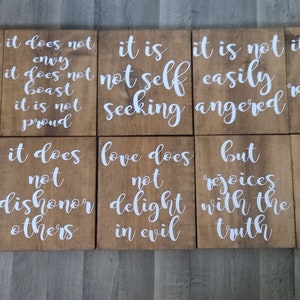 it does not
envy
it does not
boast
it is not
proud
it is
not self
seeking
it is not
easily
angered
it does
not
dishonor
others
love does
not
delight
in evil
but
rejoices
with the
truth